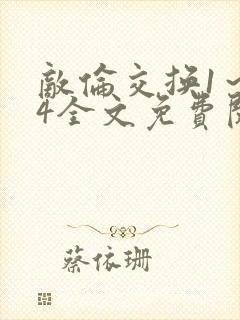 敵倫交換1～
4全文免費閱
蔡依珊